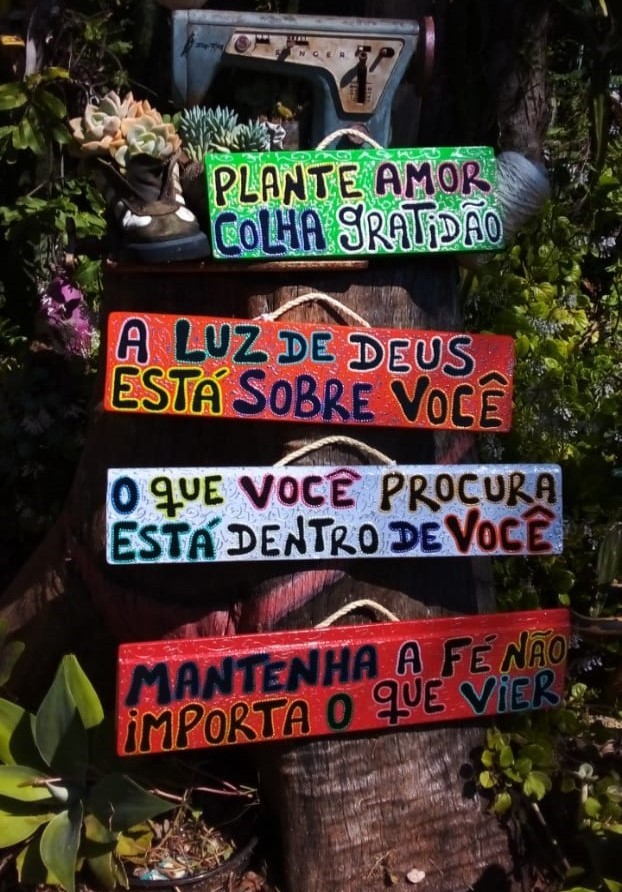 SINGER
PLANTE AMOR
COLHA GRATIDÃO
A LUZ DE DEUS
ESTÁ SOBRE VOCÊ
O QUE VOCÊ PROCURA
ESTÁ DENTRO DE VOCÊ
MANTENHA A FÉ NÃO
IMPORTA O QUE VIER